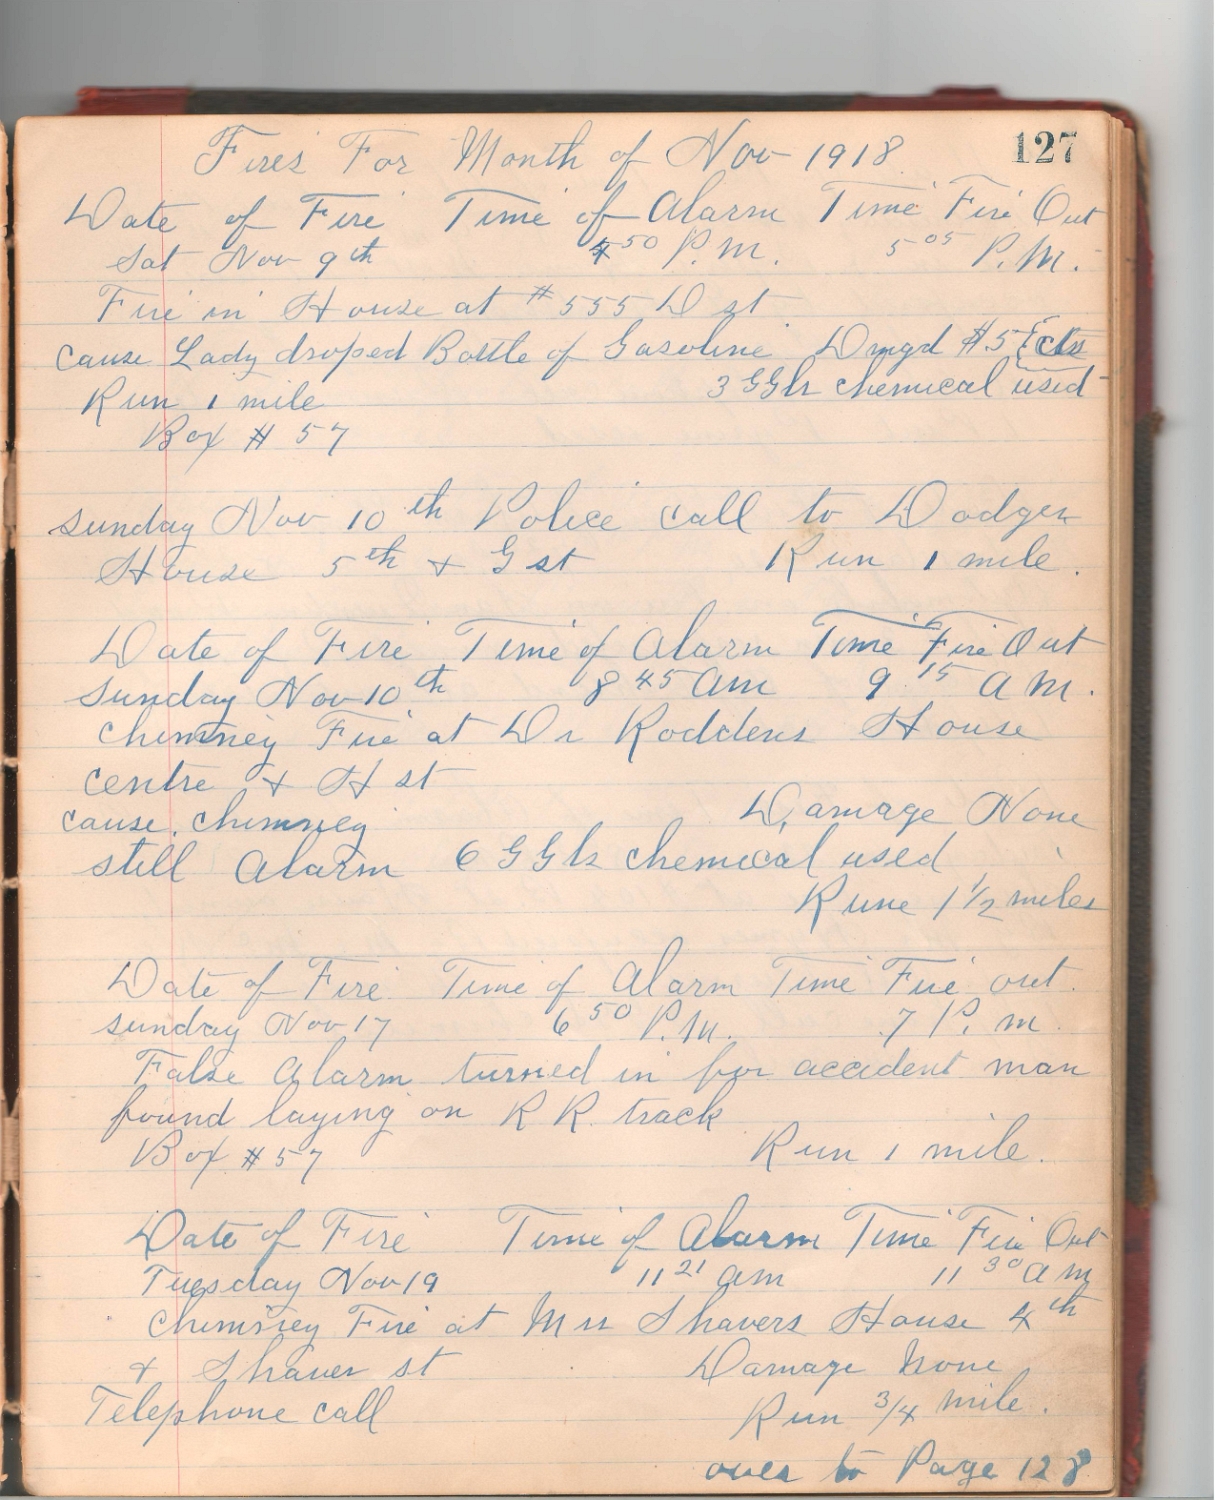 127
Fires For Month of Nov 1918
Date of Fire Time of Alarm Time Fire Out
Sat Nov 9th 4 50 P.M. 5 05 P.M.
Fire in House at #555 D st
cause Lady droped Bottle of Gasoline Dmgd #5 cts
Run 1 mile 3 GGls chemical used
Box # 57
sunday Nov 10th Police call to Dodgen
House 5th + G st Run 1 mile.
Date of Fire Time of Alarm Time Fire Out
sunday Nov 10th 8 45 am 9 15 a m.
chimney Fire at Dr Roddens House
centre + H st
cause. chimney Damage None
still Alarm 6 GGls chemical used
Rune 1 1/2 miles
Date of Fire Time of Alarm Time Fire out.
sunday Nov 17 6 50 P.M. 7 P. m.
False Alarm turned in for accident man
found laying on R R. track
Box #57 Run 1 mile.
Date of Fire Time of Alarm Time Fire Out
Tuesday Nov 19 11 21 am 11 30 a m
chimney Fire at Mrs Shavers House 4th
+ Shaver st Damage None
Telephone call Run 3/4 mile.
over to Page 128